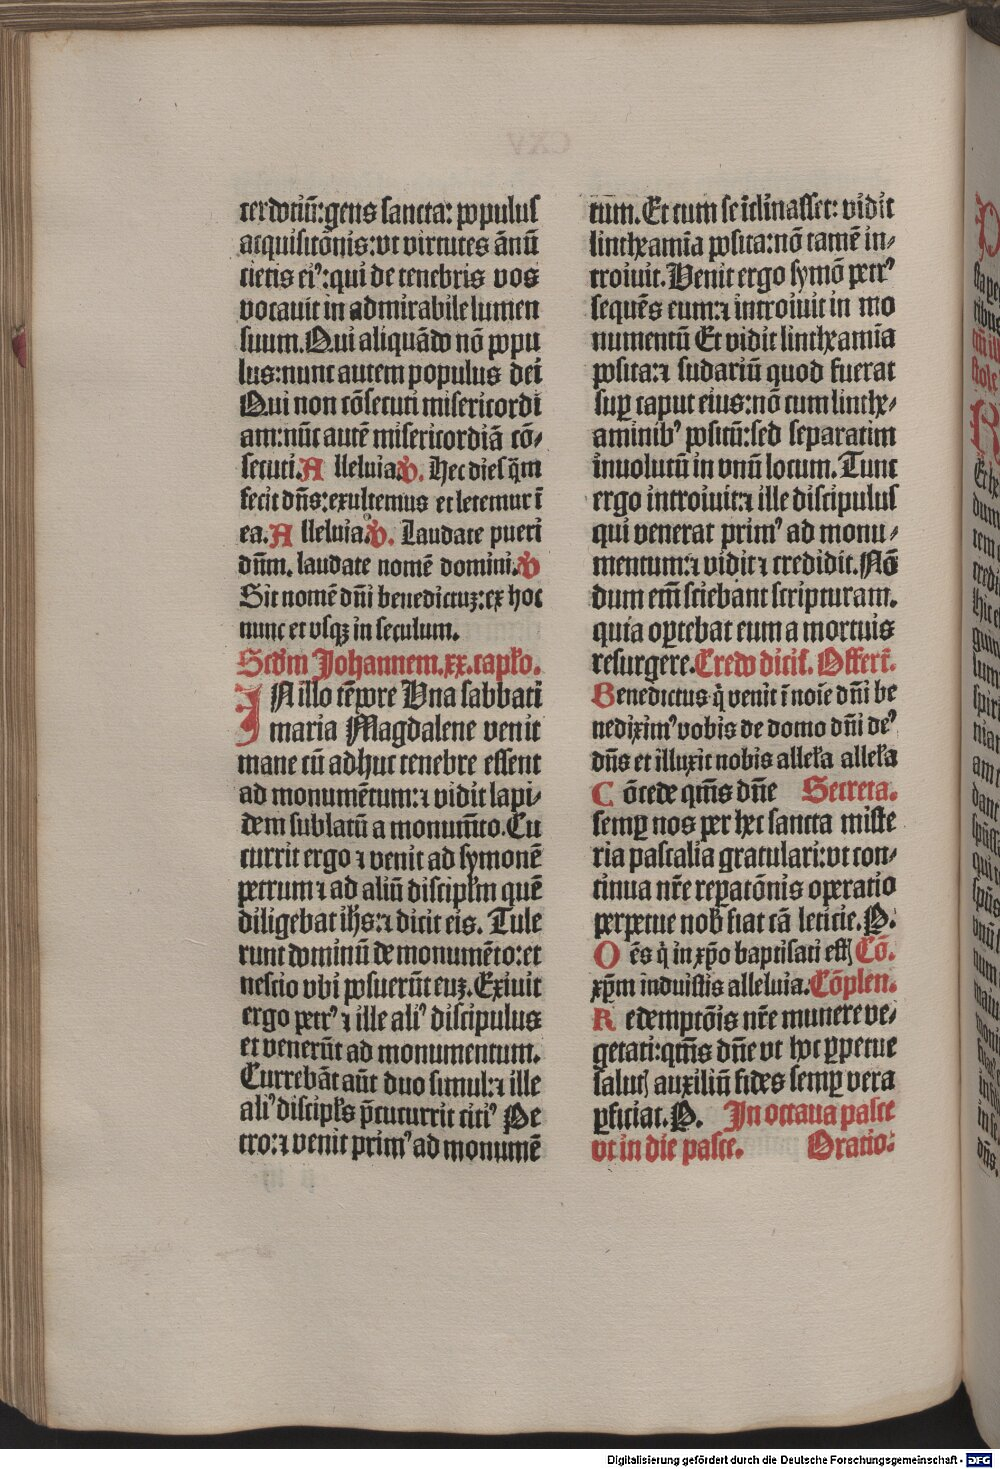 cerdotiū:gens sancta: populus
acquisitōnis:vt virtutes ānū
cietis ei⁹:qui de tenebris vos
vocauit in admirabile lumen
suum.Qui aliquādo nō popu
lus:nunc autem populus dei
Qui non cōsecuti misericordi
am:nūc autē misericordiā cō⸗
secuti.A lleluia.V. Hec dies q̄m
fecit dn̄s:exultemus et letemur ī
ea.A lleluia.V. Laudate pueri
dn̄m. laudate nomē domini.V
Sit nomē dn̄i benedictuꝫ:ex hoc
nunc et vsqꝫ in seculum.
Scd̄m Johannem.xx.capło.
IN illo tēpore Vna sabbati
maria Magdalene venit
mane cū adhuc tenebre essent
ad monumētum:⁊ vidit lapi⸗
dem sublatū a monum̄to.Cu
currit ergo ⁊ venit ad symonē
petrum ⁊ ad aliū discipłm quē
diligebat ih̄s:⁊ dicit eis. Tule
runt dominū de monumēto:et
nescio vbi posuerūt euꝫ.Exiuit
ergo petr⁹ ⁊ ille ali⁹ discipulus
et venerūt ad monumentum.
Currebāt aūt duo simul:⁊ ille
ali⁹ discipłs p̄cucurrit citi⁹ Pe
tro:⁊ venit prim⁹ ad monumē
tum.Et cum se īclinasset: vidit
linthxamīa posita:nō tamē in⸗
troiuit.Venit ergo symō petr⁹
sequēs eum:⁊ introiuit in mo
numentū Et vidit linthxamīa
posita:⁊ sudariū quod fuerat
suꝑ caput eius:nō cum linthx⸗
aminib⁹ positū:sed separatim
inuolutū in vnū locum.Tunc
ergo introiuit:⁊ ille discipulus
qui venerat prim⁹ ad monu⸗
mentum:⁊ vidit ⁊ credidit.Nō
dum em̄ sciebant scripturam.
quia oꝑtebat eum a mortuis
resurgere.Credo dicit̄. Offert̄.
Benedictus q̄ venit ī noīe dn̄i be
nedixim⁹ vobis de domo dn̄i de⁹
dn̄s et illuxit nobis alleła alleła
C ōcede qm̄s dn̄e Secreta.
semꝑ nos per hec sancta miste
ria pascalia gratulari:vt con⸗
tinua nr̄e reꝑatōnis operatio
perpetue nob̄ fiat cā leticie.P.
O ēs q̄ in xp̄o baptisati esſ Cō.
xp̄m induistis alleluia.Cōplen.
R edemptōis nr̄e munere ve⸗
getati:qm̄s dn̄e vt hoc ꝑpetue
salutꝭ auxiliū fides semꝑ vera
ꝓficiat.P. In octaua pasce
vt in die pasce. Oratio:
Digitalisierung gefördert durch die Deutsche Forschungsgemeinschaft - DFG